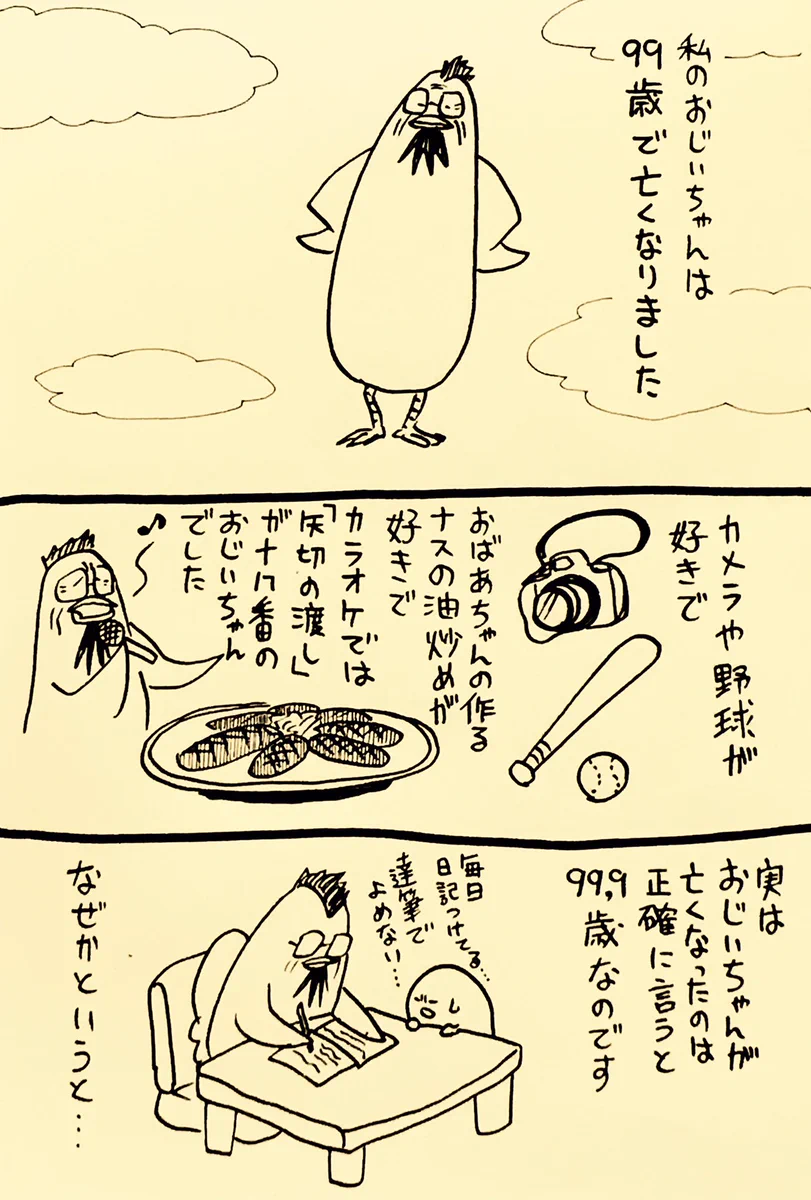 私のおじぃちゃんは
99歳で亡くなりました
カメラや野球が
好きで
おばあちゃんの作る
ナスの油炒めが
好きで
カラオケでは
「矢切の渡し」
が十八番の
おじぃちゃん
でした
♪
実は
おじぃちゃんが
亡くなったのは
正確に言うと
99,9歳なのです
毎日
日記つけてる…
達筆で
よめない…
なぜかというと…